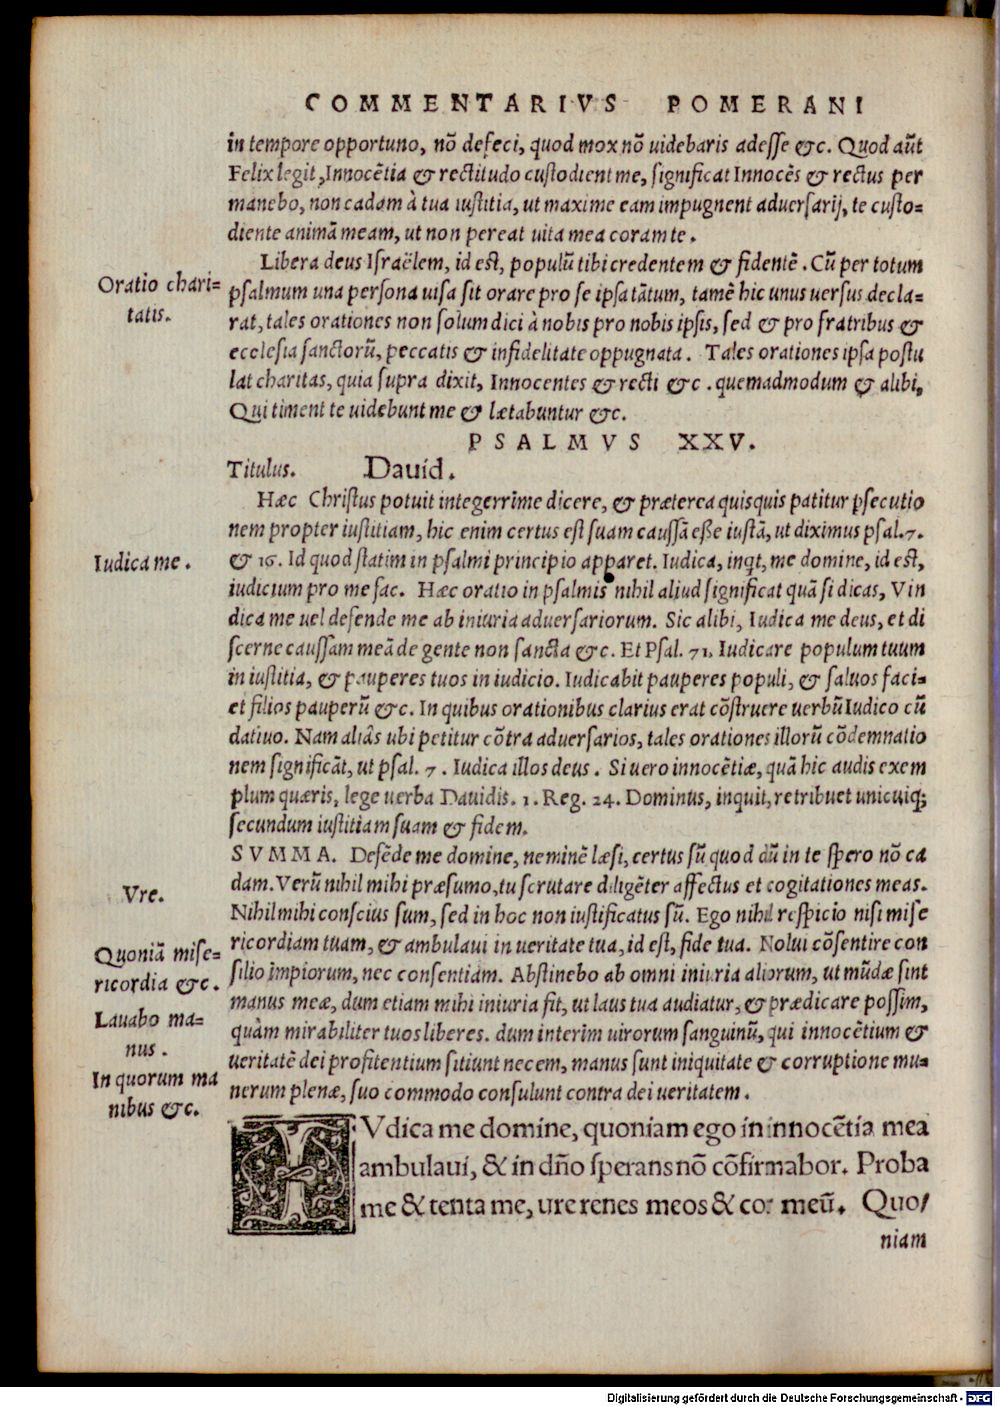 COMMENTARIVS POMERANI
in tempore opportuno, nõ defeci, quod mox nõ uidebaris adesse &c. Quod aũt
Felix legit, Innocẽtia & rectitudo custodient me, significat Innocẽs & rectus per
manebo, non cadam à tua iustitia, ut maxime eam impugnent aduersarij, te custo=
diente animã meam, ut non pereat uita mea coram te.
Libera deus Israëlem, id est, populũ tibi credentem & fidentẽ. Cũ per totum
Oratio chari=
tatis.
psalmum una persona uisa sit orare pro se ipsa tãtum, tamẽ hic unus uersus decla=
rat, tales orationes non solum dici à nobis pro nobis ipsis, sed & pro fratribus &
ecclesia sanctorũ, peccatis & infidelitate oppugnata. Tales orationes ipsa postu
lat charitas, quia supra dixit, Innocentes & recti &c. quemadmodum & alibi,
Qui timent te uidebunt me & lætabuntur &c.
PSALMVS XXV.
Titulus. Dauid.
Hæc Christus potuit integerrime dicere, & præterea quisquis patitur psecutio
nem propter iustitiam, hic enim certus est suam caussã esse iustã, ut diximus psal. 7.
Iudica me.
& 16. Id quod statim in psalmi principio apparet. Iudica, inqt, me domine, id est,
iudicium pro me fac. Hæc oratio in psalmis nihil aliud significat quã si dicas, Vin
dica me uel defende me ab iniuria aduersariorum. Sic alibi, Iudica me deus, et di
scerne caussam meã de gente non sancta &c. Et Psal. 71. Iudicare populum tuum
in iustitia, & pauperes tuos in iudicio. Iudicabit pauperes populi, & saluos faci=
et filios pauperũ &c. In quibus orationibus clarius erat cõstruere uerbũ Iudico cũ
datiuo. Nam aliâs ubi petitur cõtra aduersarios, tales orationes illorũ cõdemnatio
nem significãt, ut psal. 7. Iudica illos deus. Si uero innocẽtiæ, quã hic audis exem
plum quæris, lege uerba Dauidis. 1. Reg. 24. Dominus, inquit, retribuet unicuiq;
secundum iustitiam suam & fidem.
SVMMA. Defẽde me domine, neminẽ læsi, certus sũ quod dũ in te spero nõ ca
Vre.
dam. Verũ nihil mihi præsumo, tu scrutare diligẽter affectus et cogitationes meas.
Nihil mihi conscius sum, sed in hoc non iustificatus sũ. Ego nihil respicio nisi mise
Quoniã mise=
ricordia &c.
ricordiam tuam, & ambulaui in ueritate tua, id est, fide tua. Nolui cõsentire con
silio impiorum, nec consentiam. Abstinebo ab omni iniuria aliorum, ut mũdæ sint
Lauabo ma=
nus.
manus meæ, dum etiam mihi iniuria fit, ut laus tua audiatur, & prædicare possim,
quàm mirabiliter tuos liberes. dum interim uirorum sanguinũ, qui innocẽtium &
In quorum ma
nibus &c.
ueritatẽ dei profitentium sitiunt necem, manus sunt iniquitate & corruptione mu=
nerum plenæ, suo commodo consulunt contra dei ueritatem.
IVdica me domine, quoniam ego in innocẽtia mea
ambulaui, & in dño sperans nõ cõfirmabor. Proba
me & tenta me, ure renes meos & cor meũ. Quo/
niam
Digitalisierung gefördert durch die Deutsche Forschungsgemeinschaft - DFG